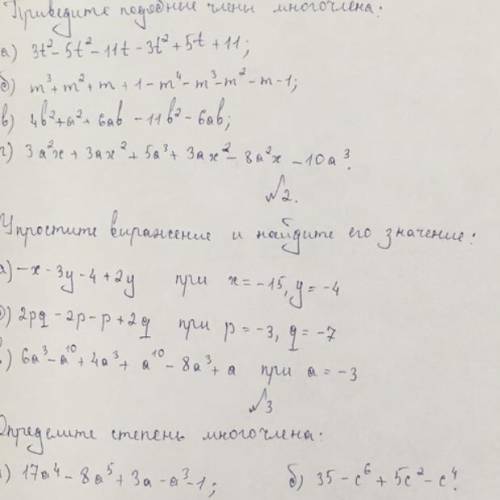 Приведите подобные члены многочлена:
а) 3t²-5t²-11t-3t²+5t+11;
б) m³+m²+m+1-m⁴-m³-m²-m-1;
в) 4b²+a²+6ab-11b²-6ab;
г) 3a²x+3ax²+5a³+3ax²-8a²x-10a³.
№2.
Упростите выражение и найдите его значение:
а) -x-3y-4+2y при x=-15, y=-4
б) 2pq-2p-p+2q при p=-3, q=-7
в) 6a³-a¹⁰+4a³+a¹⁰-8a³+a при a=-3
№3
Определите степень многочлена:
а) 17a⁴-8a⁵+3a-a³-1; б) 35-c⁶+5c²-c⁴.